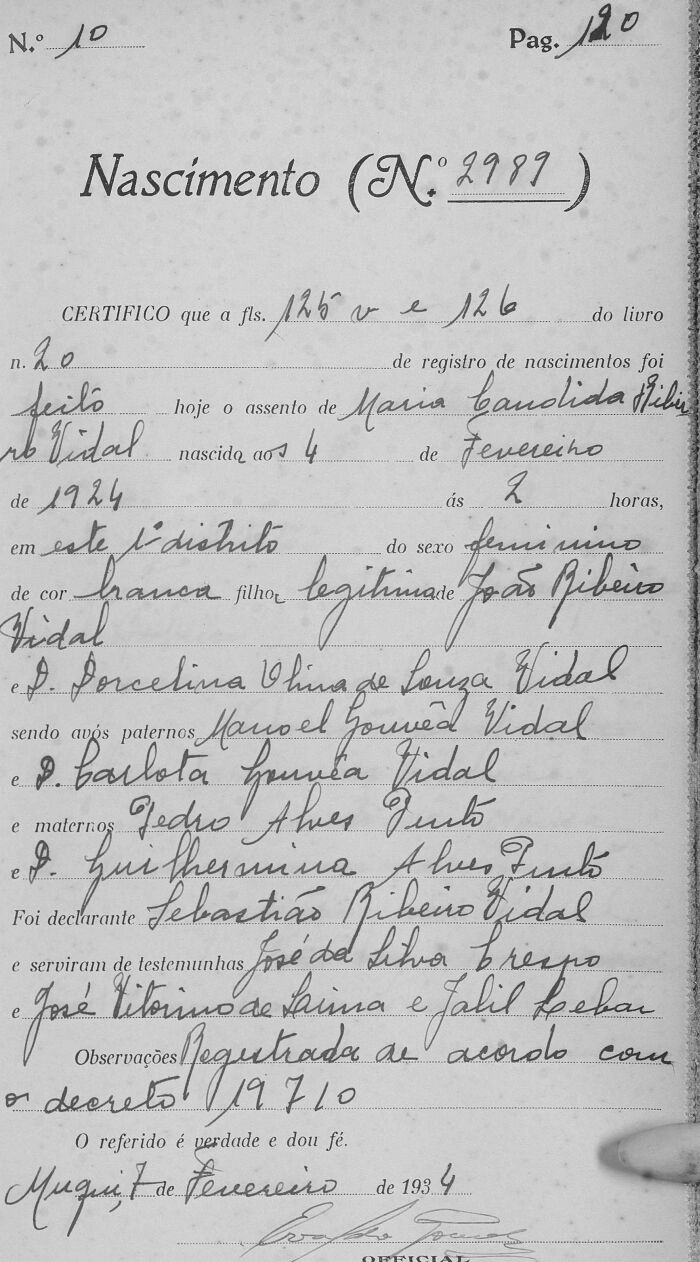 N.º 10 Pag. 120
Nascimento (N.º 2989)
CERTIFICO que a fls. 125 v e 126 do livro
n. 20 de registro de nascimentos foi
feito hoje o assento de Maria Candida Ribei
ro Vidal nascida aos 4 de Fevereiro
de 1924 ás 2 horas,
em este 1º distrito do sexo feminino
de cor branca filha legitima de João Ribeiro
Vidal
e D. Dorcelina de Souza Vidal
sendo avós paternos Manoel Gouvêa Vidal
e D. Carlota Gouvêa Vidal
e maternos Pedro Alves Pinto
e D. Guilhermina Alves Pinto
Foi declarante Sebastião Ribeiro Vidal
e serviram de testemunhas José da Silva Crespo
e José Vitorino de Laima e Jalil
Observações Registrada de acordo com
o decreto 19710
O referido é verdade e dou fé.
Muqui, 7 de Fevereiro de 1934
OFFICIAL